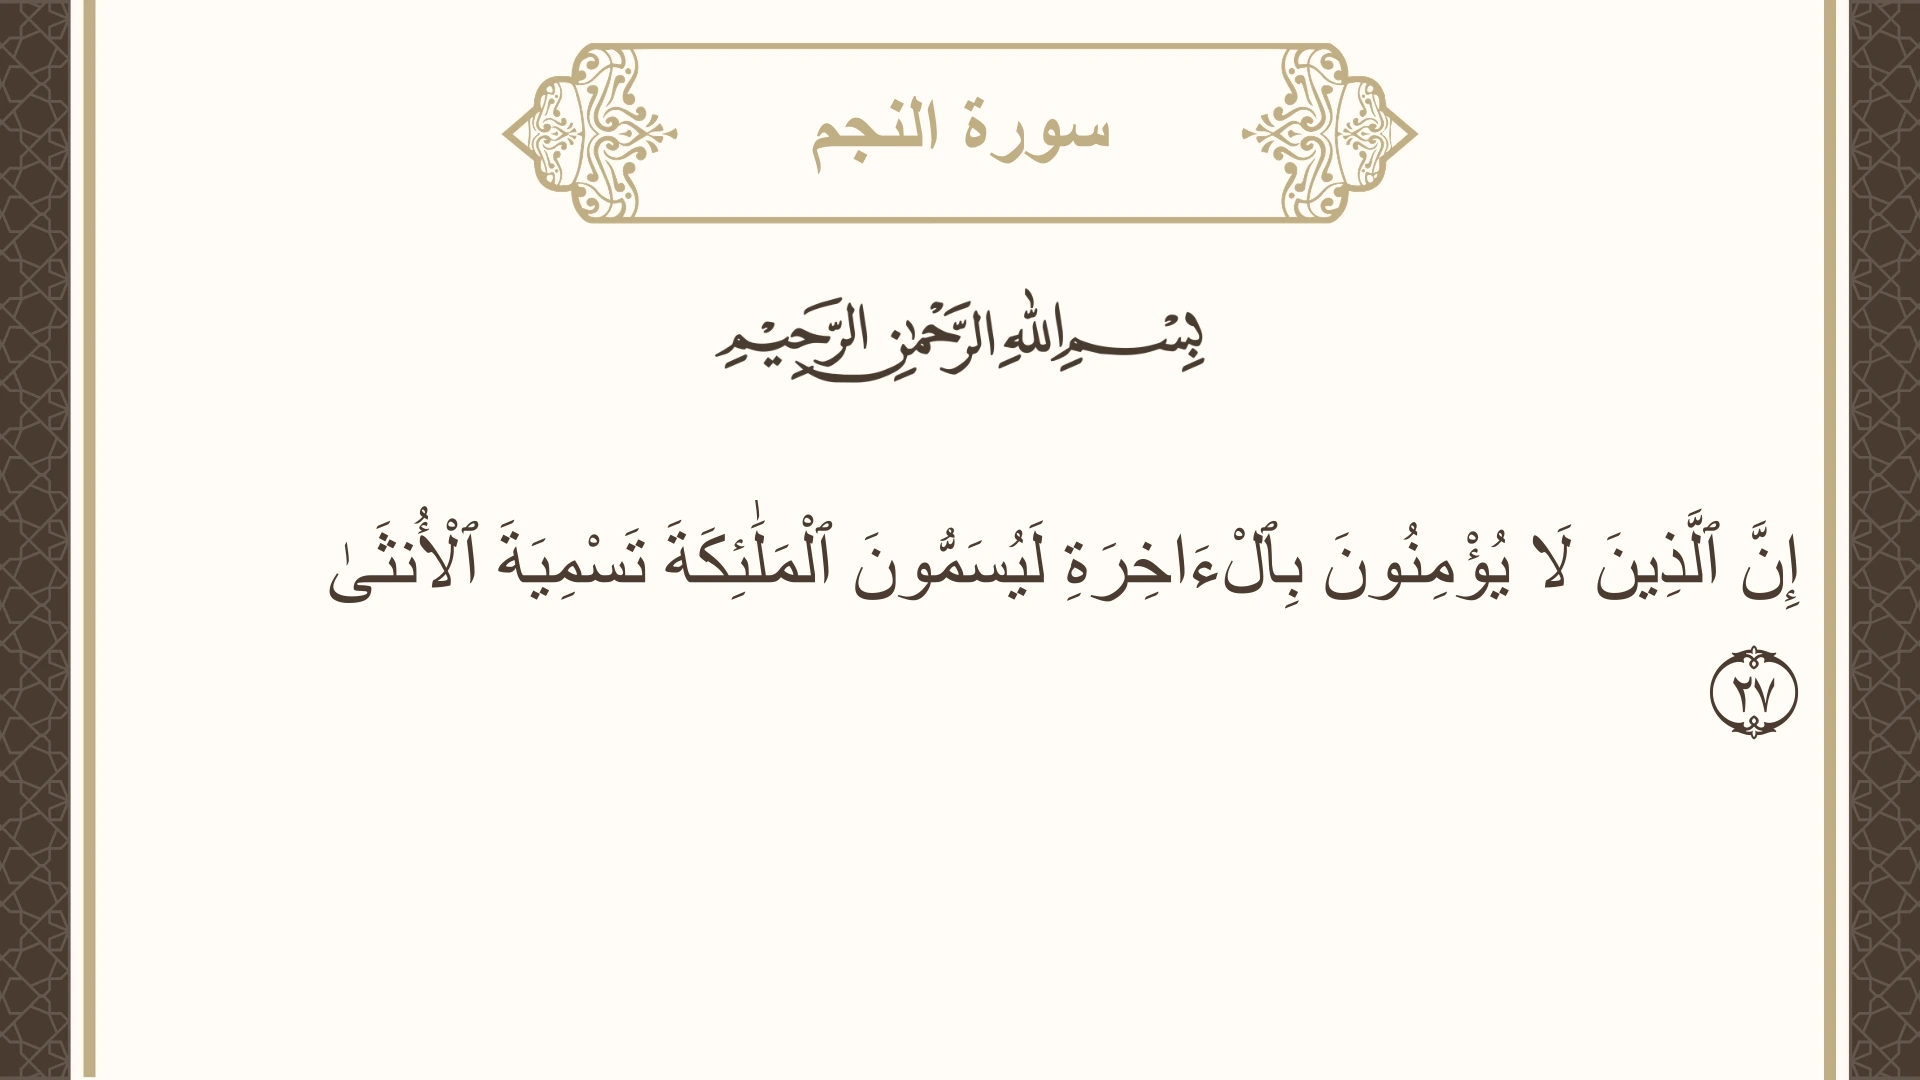 سورة النجم
بِسْمِ اللهِ الرَّحْمٰنِ الرَّحِيْمِ
إِنَّ ٱلَّذِينَ لَا يُؤْمِنُونَ بِٱلْءَاخِرَةِ لَيُسَمُّونَ ٱلْمَلَٰٓئِكَةَ تَسْمِيَةَ ٱلْأُنثَىٰ
٢٧